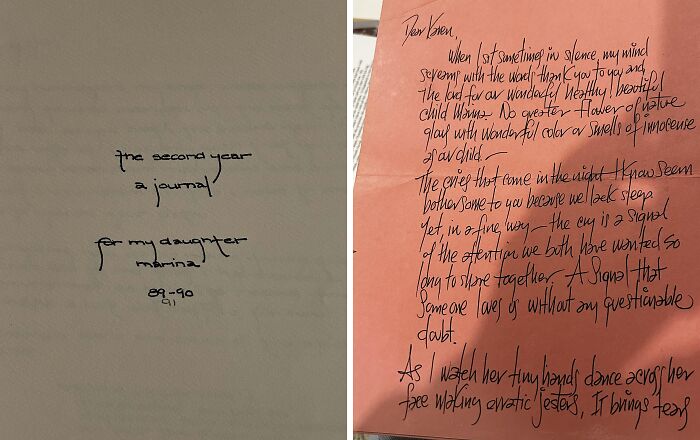 the second year
a journal
for my daughter
marina
89-90
91
Dear Karen,
When I sit sometimes in silence, my mind
screams with the words thank you to you and
the lord for our wonderful healthy beautiful
child Marina. No greater flower of nature
glows with wonderful color or smells of innocense
as our child —
The cries that come in the night I know seem
bothersome to you because we lack sleep
yet, in a fine way — the cry is a signal
of the attention we both have wanted so
long to share together. A signal that
someone loves us without any questionable
doubt.
As I watch her tiny hands dance across her
face making erratic jesters, It brings tears